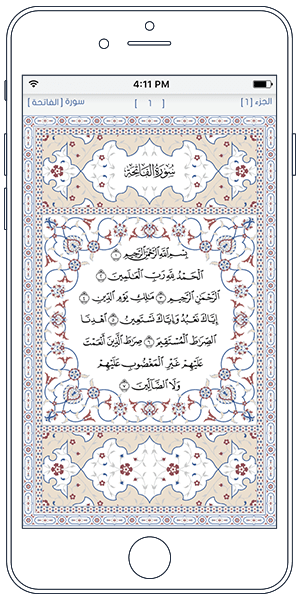 4:11 PM
الجزء [1] [ 1 ] سورة [الفاتحة]
سُورَةُ الفَاتِحَةِ
بِسْمِ اللَّهِ الرَّحْمَٰنِ الرَّحِيمِ ١
الْحَمْدُ لِلَّهِ رَبِّ الْعَالَمِينَ ٢
الرَّحْمَٰنِ الرَّحِيمِ ٣ مَالِكِ يَوْمِ الدِّينِ ٤
إِيَّاكَ نَعْبُدُ وَإِيَّاكَ نَسْتَعِينُ ٥ اهْدِنَا
الصِّرَاطَ الْمُسْتَقِيمَ ٦ صِرَاطَ الَّذِينَ أَنْعَمْتَ
عَلَيْهِمْ غَيْرِ الْمَغْضُوبِ عَلَيْهِمْ
وَلَا الضَّالِّينَ ٧